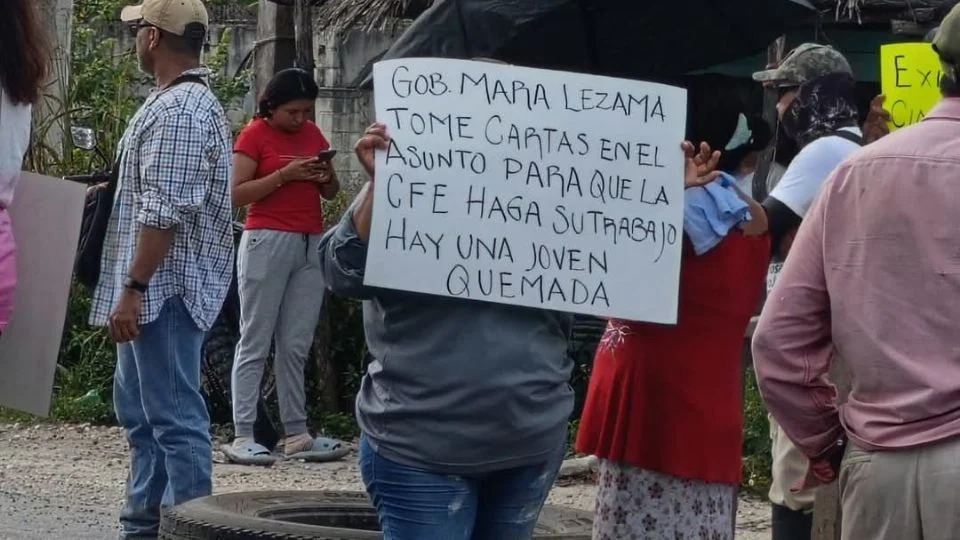 GOB. MARA LEZAMA
TOME CARTAS EN EL
ASUNTO PARA QUE LA
CFE HAGA SU TRABAJO
HAY UNA JOVEN
QUEMADA